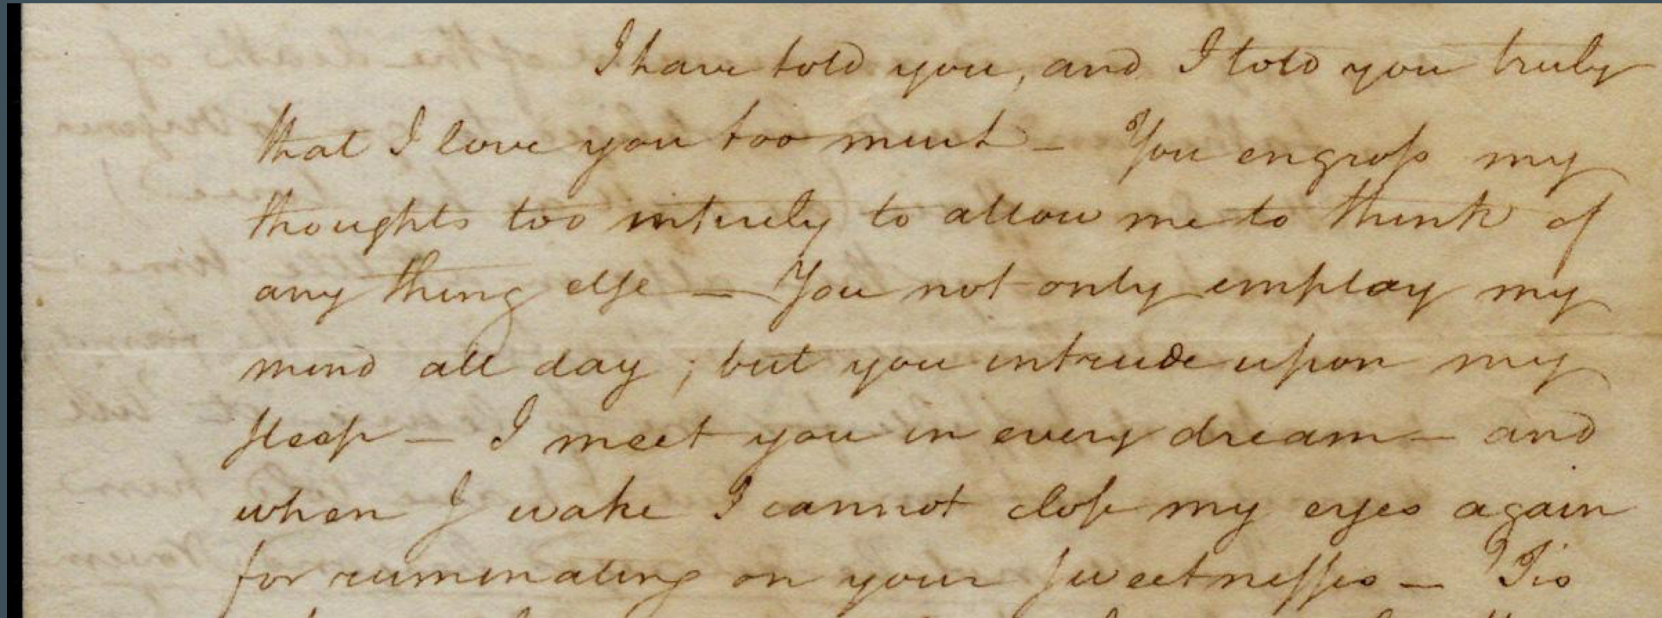 I have told you, and I told you truly
that I love you too much — You engross my
thoughts too intirely to allow me to think of
any thing else — You not only employ my
mind all day; but you intrude upon my
sleep — I meet you in every dream — and
when I wake I cannot close my eyes again
for ruminating on your sweetnesses — 'Tis